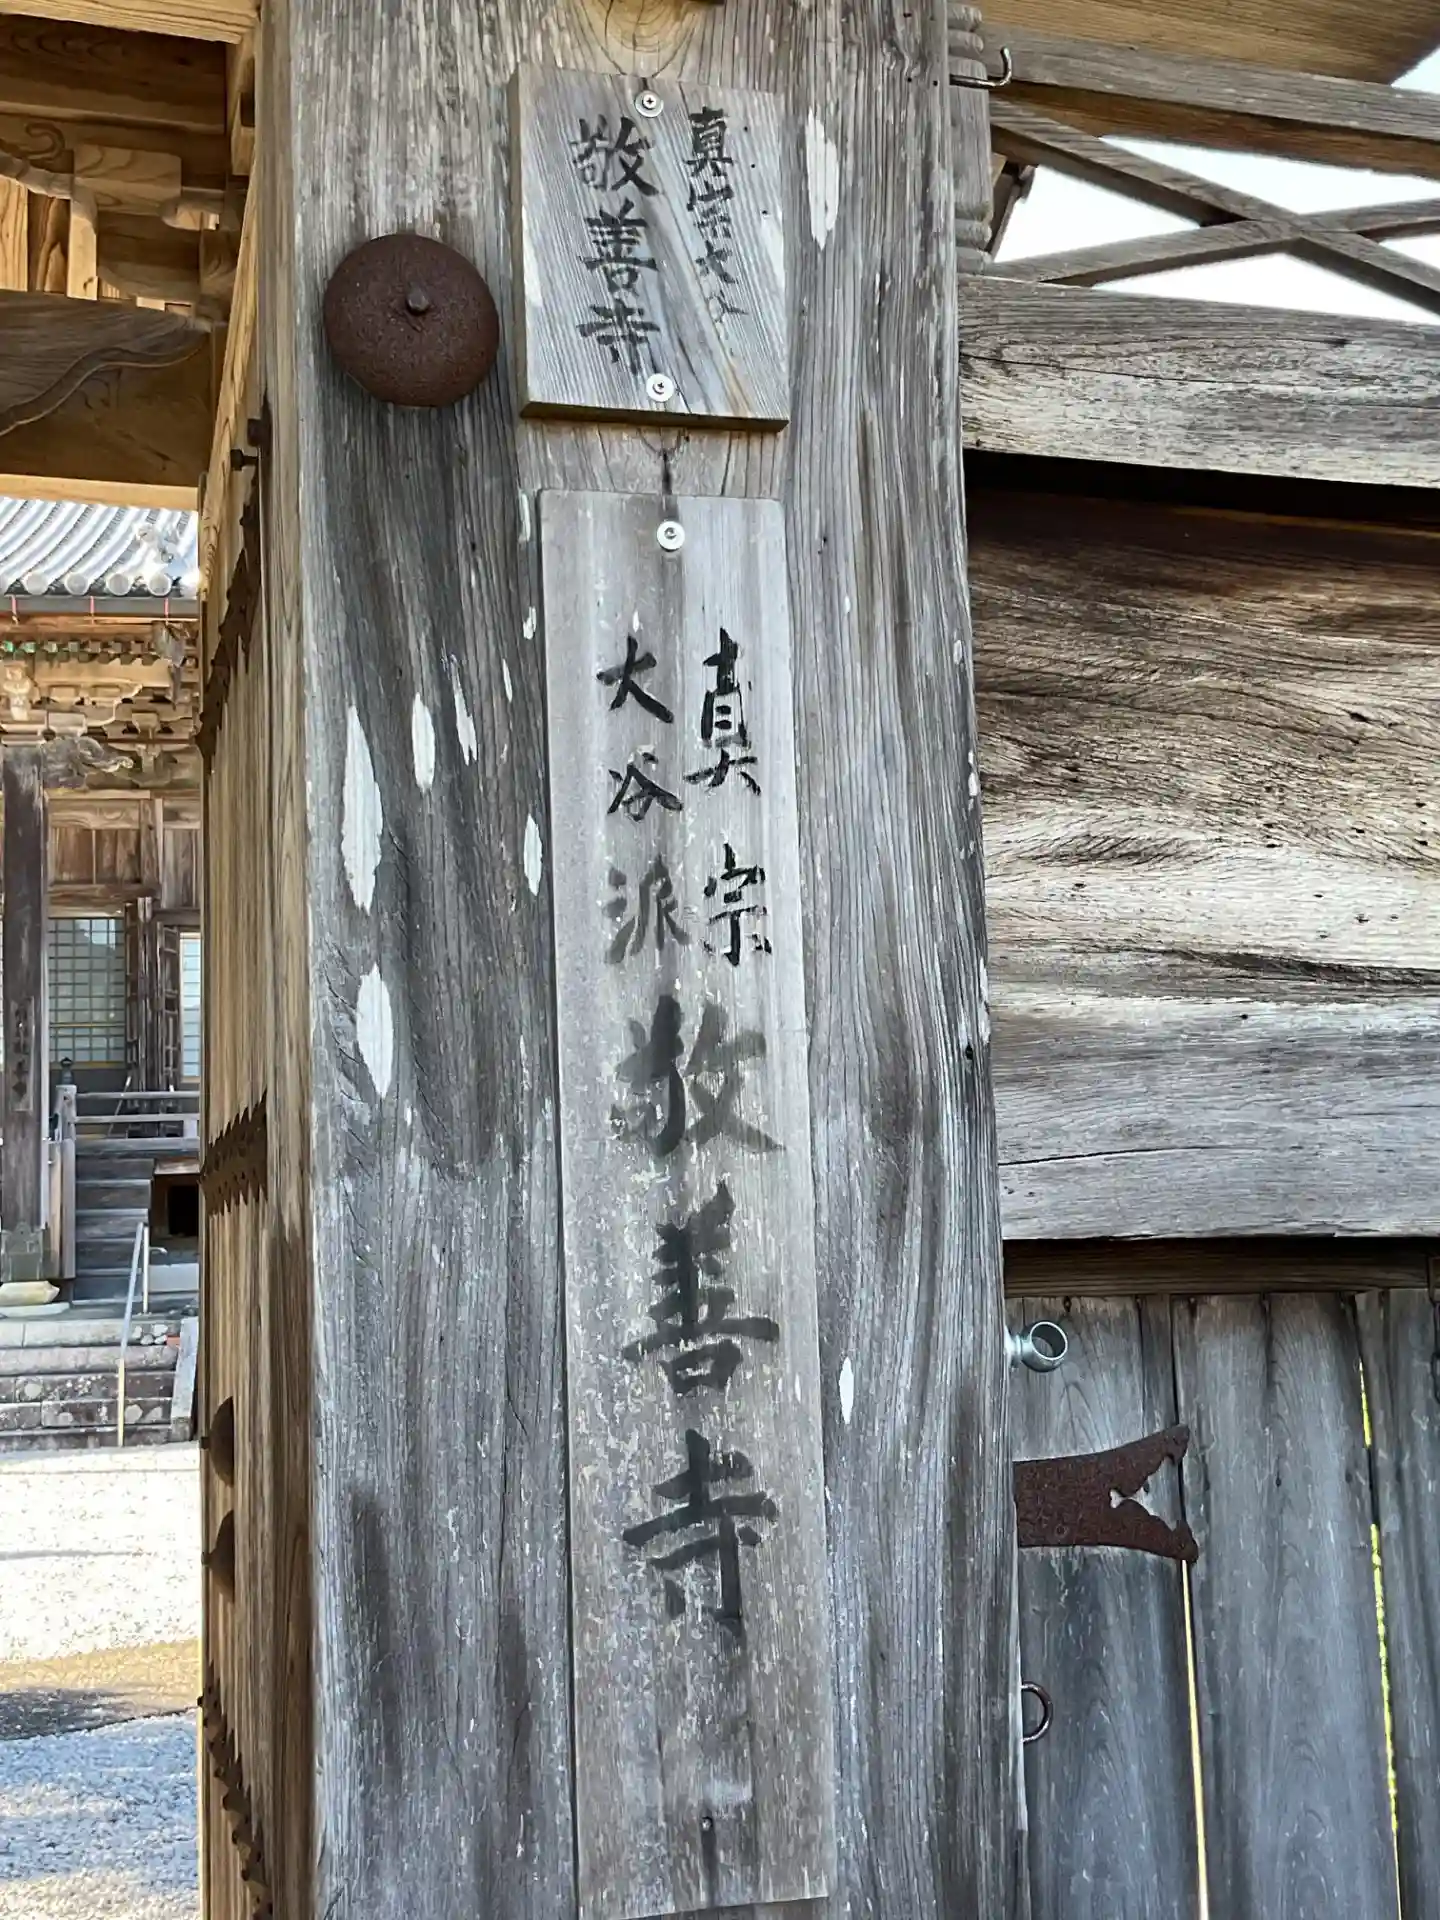 真宗大谷
敬善寺
真宗
大谷派
敬善寺